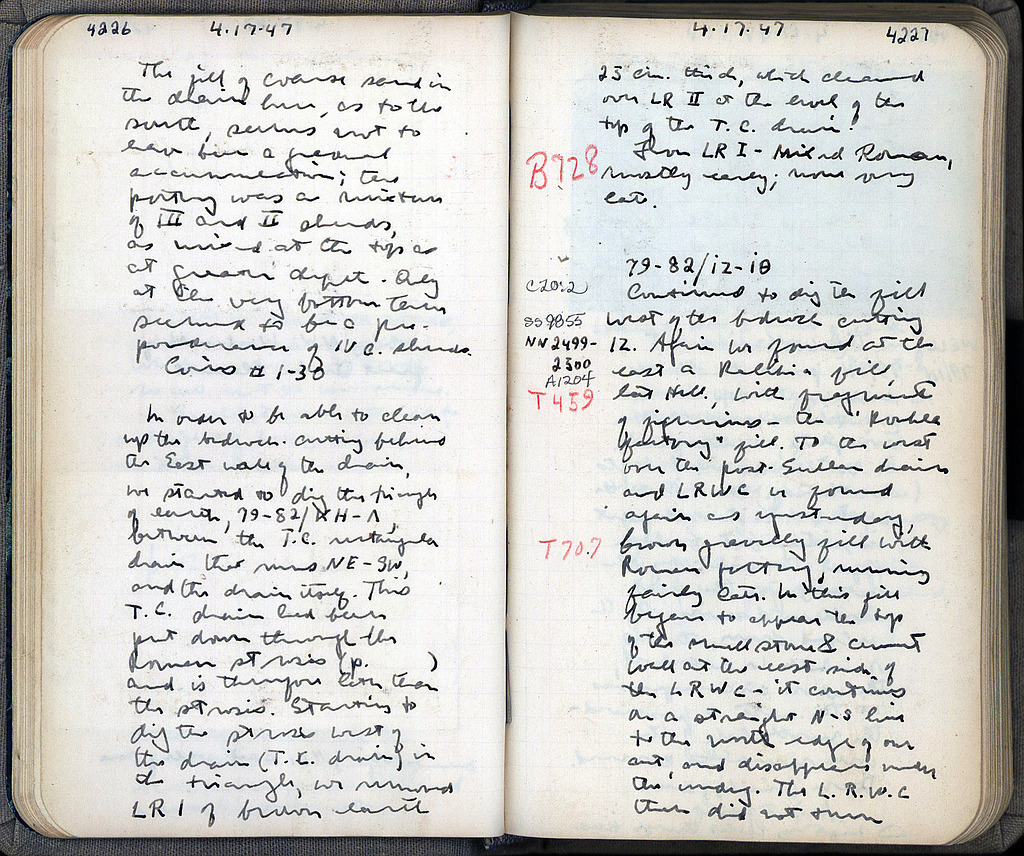 4226 4.17.47
The fill of coarse sand in
the drain here, as to the
south, seems not to
have been a gradual
accumulation; the
pottery was a mixture
of III and II sherds,
as mixed at the top as
at greater depth. Only
at the very bottom there
seemed to be a pre-
ponderance of IV c. sherds.
Coins # 1-30
In order to be able to clean
up the bedrock cutting behind
the East wall of the drain,
we started to dig the triangle
of earth, 79-82/ΚΗ-Λ,
between the T.C. rectangular
drain that runs NE-SW,
and the drain itself. This
T.C. drain had been
put down through the
Roman strosis (p. )
and is therefore later than
the strosis. Starting to
dig the stroses west of
the drain (T.C. drain) in
the triangle, we removed
LR I of brown earth
4.17.47 4227
25 cm. thick, which cleaned
over LR II at the level of the
top of the T.C. drain.
B728
From LR I - Mixed Roman,
mostly early; none very
late.
79-82/ΙΖ-ΙΘ
C2012
Continued to dig the fill
SS9855
west of the bedrock cutting
NN2499-
2500
12. Again we found at the
A1204
east a rubbish fill,
T459
late Hell., with fragments
of figurines - the
factory" fill. To the west
over the post-Sullan drain
and LRWC is found
again as yesterday,
T707
brown gravelly fill with
Roman pottery, running
fairly late. In this fill
began to appear the top
of the small stone & cement
wall at the west side of
the LRWC - it continues
on a straight N-S line
to the north edge of our
cut, and disappears under
the undug. The L.R.W.C
then did not turn